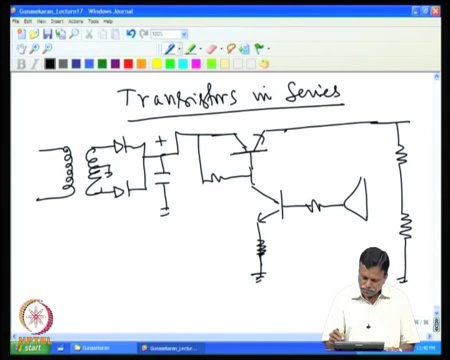 Gunasekaran_Lecture17 - Windows Journal
File Edit View Insert Actions Tools Help
100%
B I
Transistors in Series
+
start
Gunasekaran
Gunasekaran_Lectur...